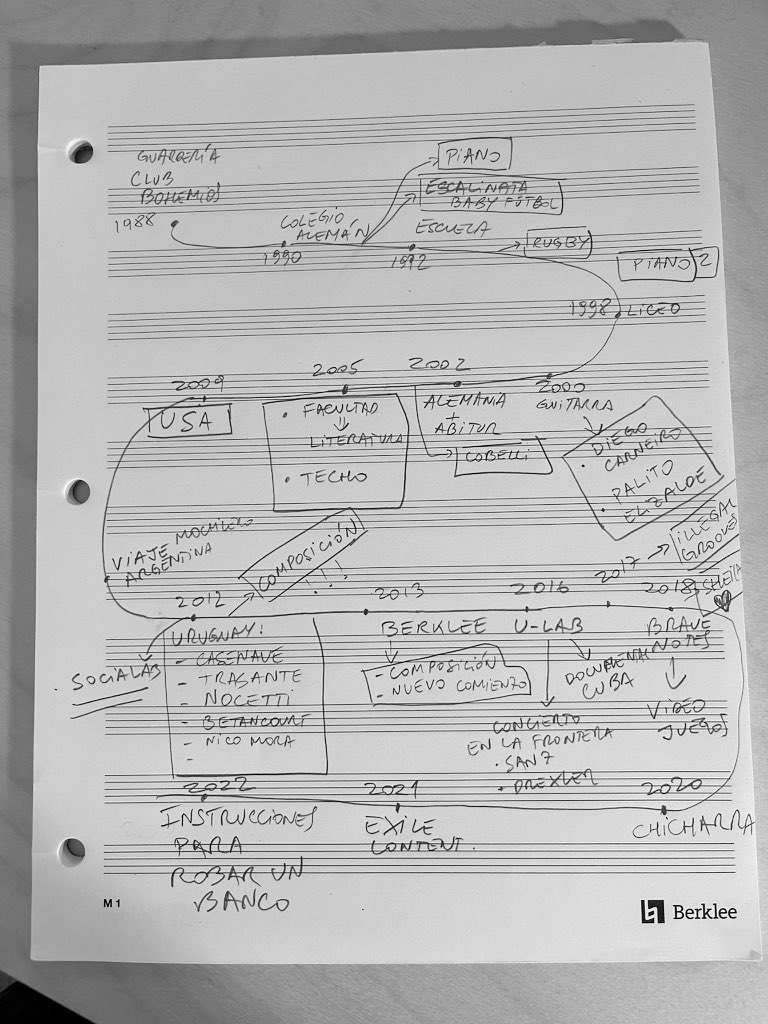 GUARDERÍA
CLUB
BOHEMIOS
1988
PIANO
ESCALINATA
BABY FÚTBOL
COLEGIO
ALEMÁN
1990
ESCUELA
1992
RUGBY
PIANO 2
1998 LICEO
2009
USA
2005
• FACULTAD
⇓
LITERATURA
• TECHO
2002
ALEMANIA
+
ABITUR
COBELLI
2000
GUITARRA
• DIEGO
CARNEIRO
• PALITO
ELIZALDE
VIAJE MOCHILERO
ARGENTINA
COMPOSICIÓN
!!!
2012
SOCIALAB
URUGUAY:
- CASENAVE
- TRASANTE
- NOCETTI
- BETANCOURT
- NICO MORA
-
2013
BERKLEE
- COMPOSICIÓN
- NUEVO COMIENZO
2016
U-LAB
DOCUMENTAL
CUBA
CONCIERTO
EN LA FRONTERA
• SANZ
• DREXLER
2017 → ILLEGAL
GROOVES
2018
SHEILA
BRAVE
NOTES
VIDEO
JUEGOS
2020
CHICHARRA
2021
EXILE
CONTENT.
2022
INSTRUCCIONES
PARA
ROBAR UN
BANCO
M 1
Berklee